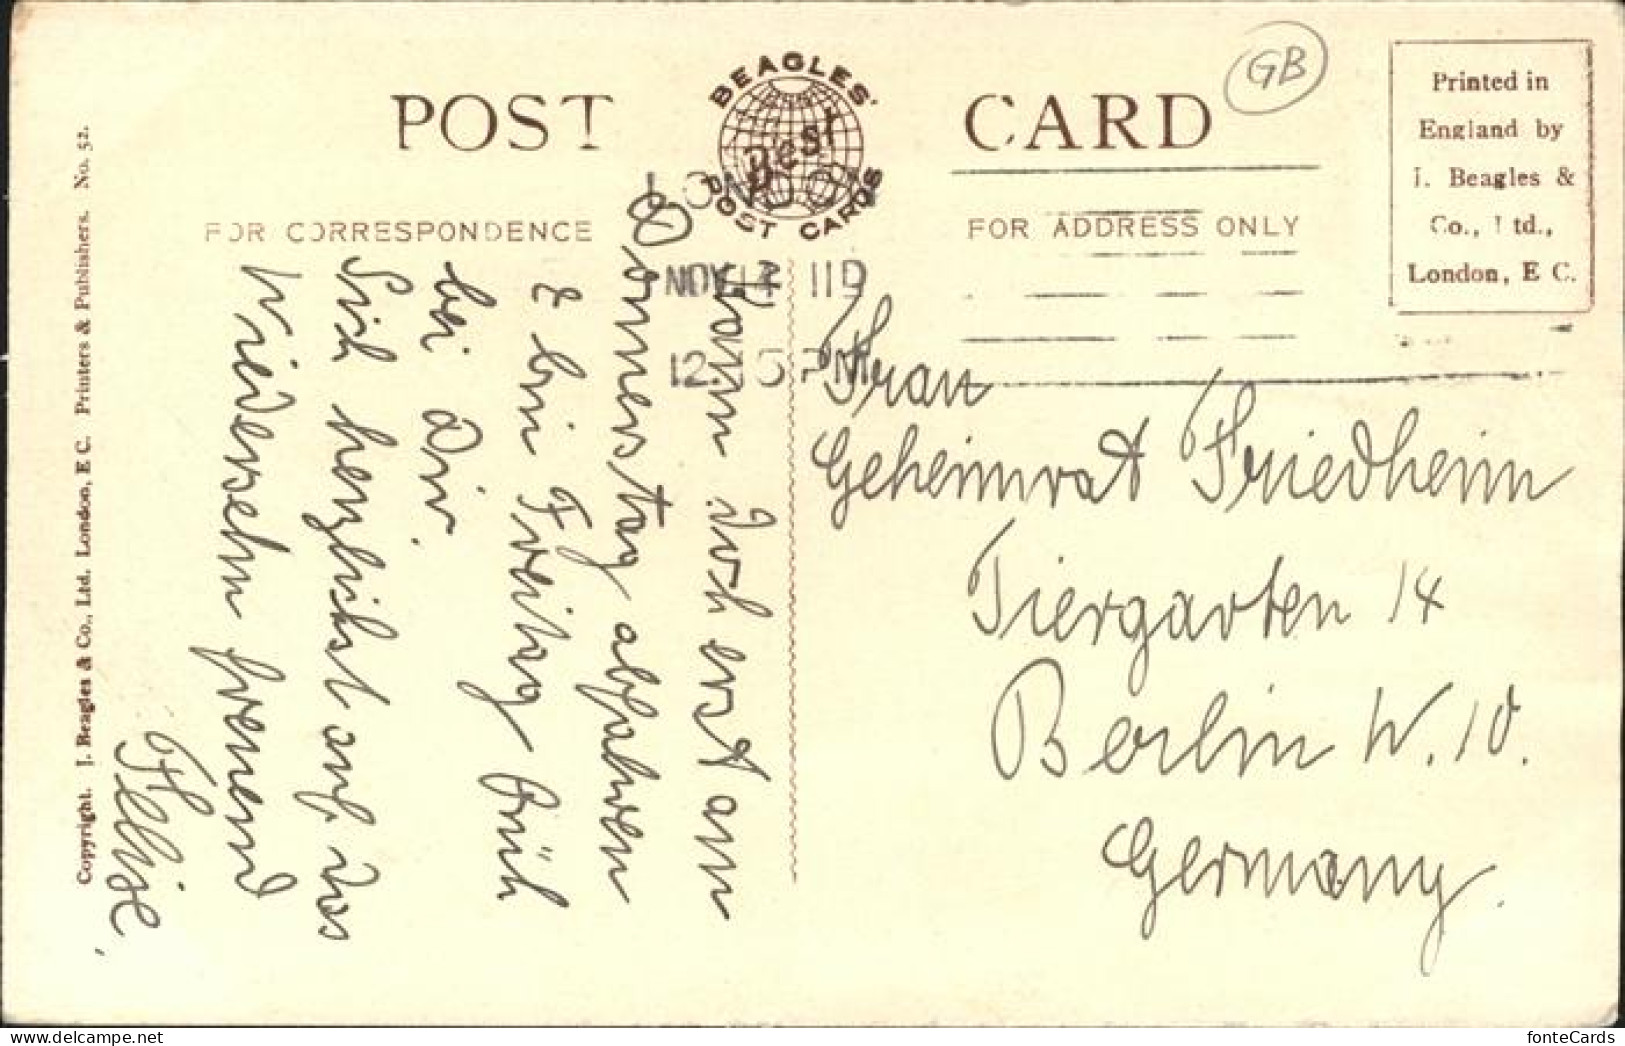 POST CARD
BEAGLES' Best POST CARDS
GB
Printed in
England by
J. Beagles &
Co., Ltd.,
London, E C.
FOR CORRESPONDENCE
FOR ADDRESS ONLY
LONDON
NOV 14 11D
12. 5 PM
Kann doch erst am
Donnerstag abfahren
& bin Freitag früh
bei Dir.
Sich herzlichst auf das
Wiedersehn freuend
Frau
Geheimrat Friedheim
Tiergarten 14
Berlin W. 10.
Germany.
Copyright. J. Beagles & Co., Ltd. London, E C. Printers & Publishers. No. 52.
fonteCards